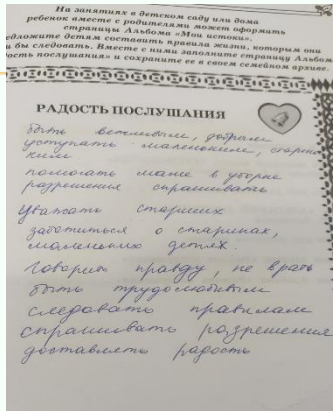 На занятиях в детском саду или дома
ребенок вместе с родителями может оформить
страницы Альбома «Мои истоки».
едложите детям составить правила жизни, которым они
и бы следовать. Вместе с ними заполните страницу Альбом
ость послушания» и сохраните ее в своем семейном архиве.
РАДОСТЬ ПОСЛУШАНИЯ
быть вежливыми, добрыми
уступать маленьким, старень
ким
помогать маме в уборке
разрешения спрашивать
Уважать старших
заботиться о стариках,
маленьких детях.
Говорить правду, не врать
быть трудолюбивым
следовать правилам
спрашивать разрешения
доставлять радость